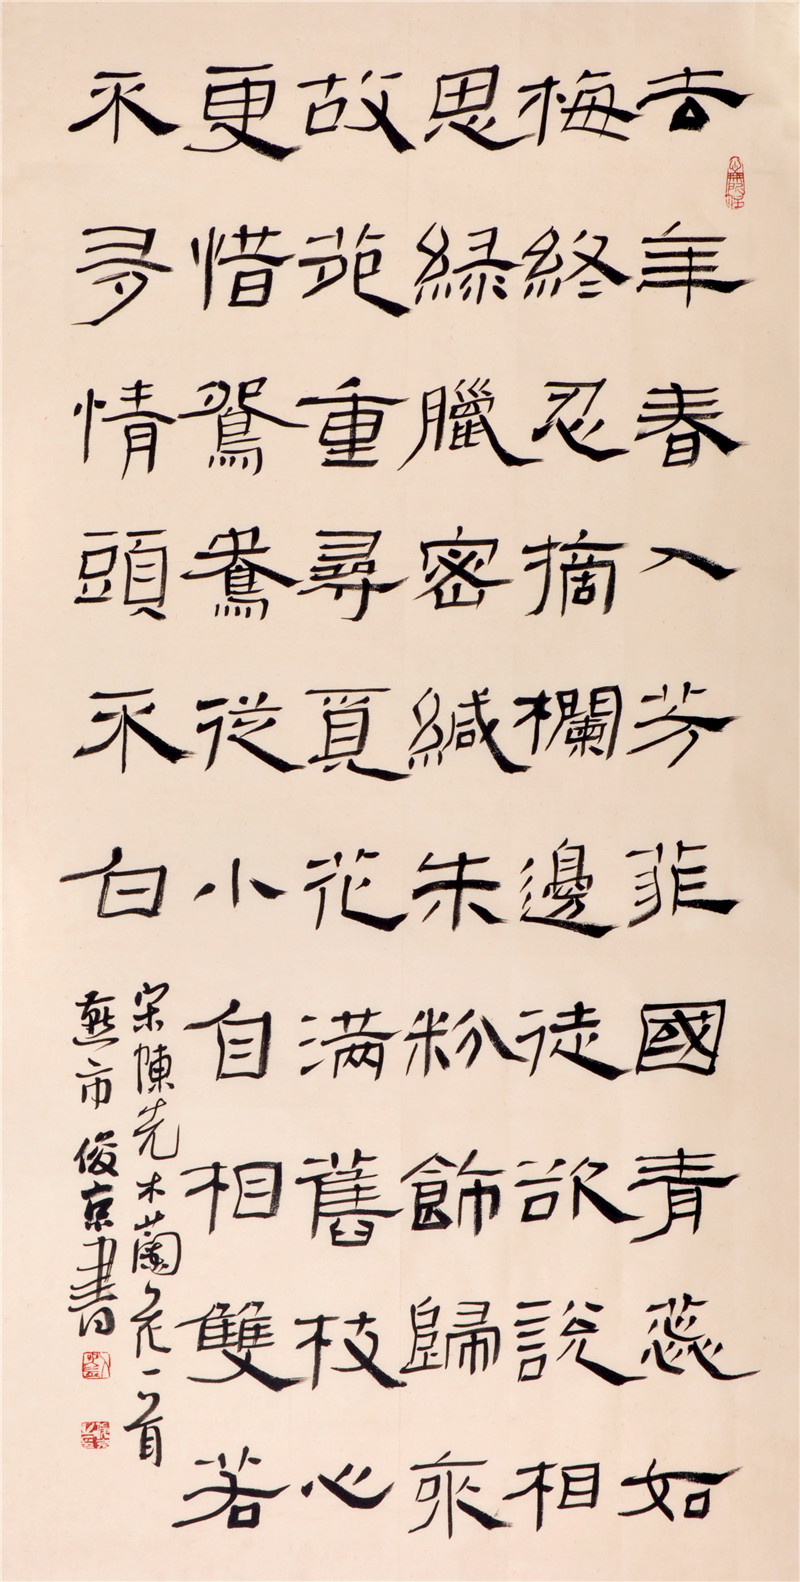 去年春入芳菲國青蕊如
梅終忍摘欄邊徒欲說相
思緑臘密緘朱粉飾歸來
故苑重尋覓花滿舊枝心
更惜鴛鴦從小自相雙若
不多情頭不白
宋陳先木蘭花一首
燕市俊京書